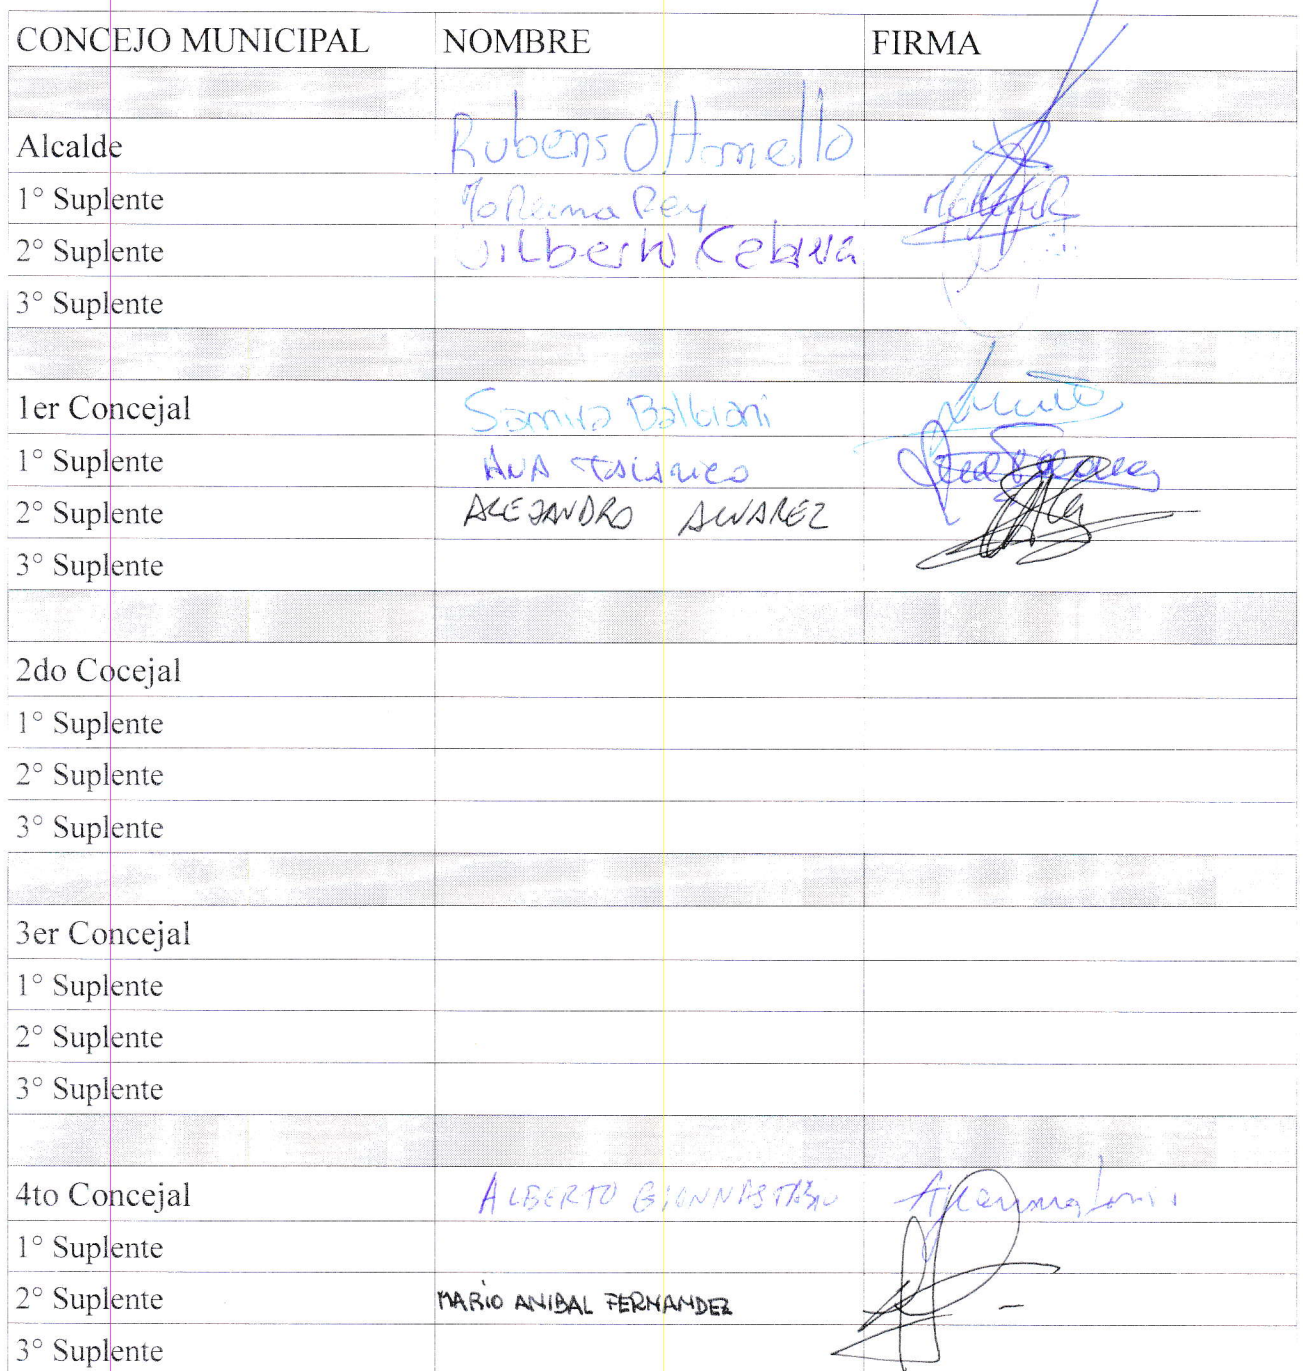 CONCEJO MUNICIPAL NOMBRE FIRMA
Alcalde Rubens Ottonello
1° Suplente Rey
2° Suplente Jilberto Cabrera
3° Suplente
1er Concejal Samira Balbiani
1° Suplente ANA
2° Suplente ALEJANDRO ALVAREZ
3° Suplente
2do Cocejal
1° Suplente
2° Suplente
3° Suplente
3er Concejal
1° Suplente
2° Suplente
3° Suplente
4to Concejal ALBERTO
1° Suplente
2° Suplente MARIO ANIBAL FERNANDEZ
3° Suplente